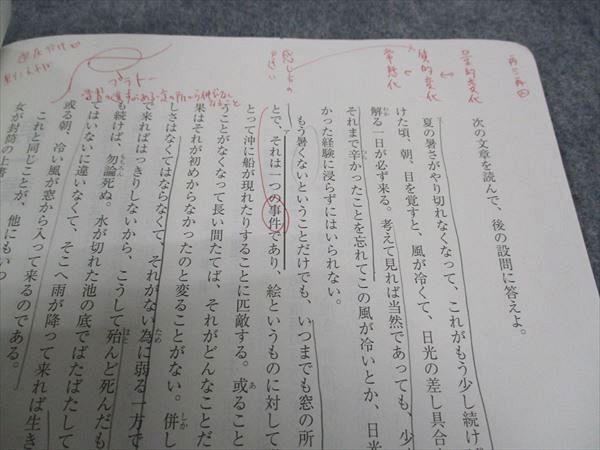 次の文章を読んで、後の設問に答えよ。
夏の暑さがやり切れなくなって、これがもう少し続け
けた頃、朝、目を覚すと、風が冷くて、日光の差し具合
解る一日が必ず来る。考えて見れば当然であっても、少
それまで辛かったことを忘れてこの風が冷いとか、日光
かった経験に浸らずにはいられない。
もう暑くないということだけでも、いつまでも窓の所
とで、それは一つの事件であり、絵というものに対して
とって沖に船が現れたりすることに匹敵する。或ること
うことがなくなって長い間たてば、それがどんなことだ
果はそれが初めからなかったのと変ることがない。併し
しさはなくてはならなくて、それがない為に弱る一方で
で来ればはっきりしないから、こうして殆んど死んだも
も続けば、勿論死ぬ。水が切れた池の底でばたばたして
てはいないに違いなくて、そこへ雨が降って来れば生き
或る朝、冷い風が窓から入って来るのである。
これと同じことが、他にもいつ
女が封筒の上書
量的変化
質的変化
常態化
プラトー